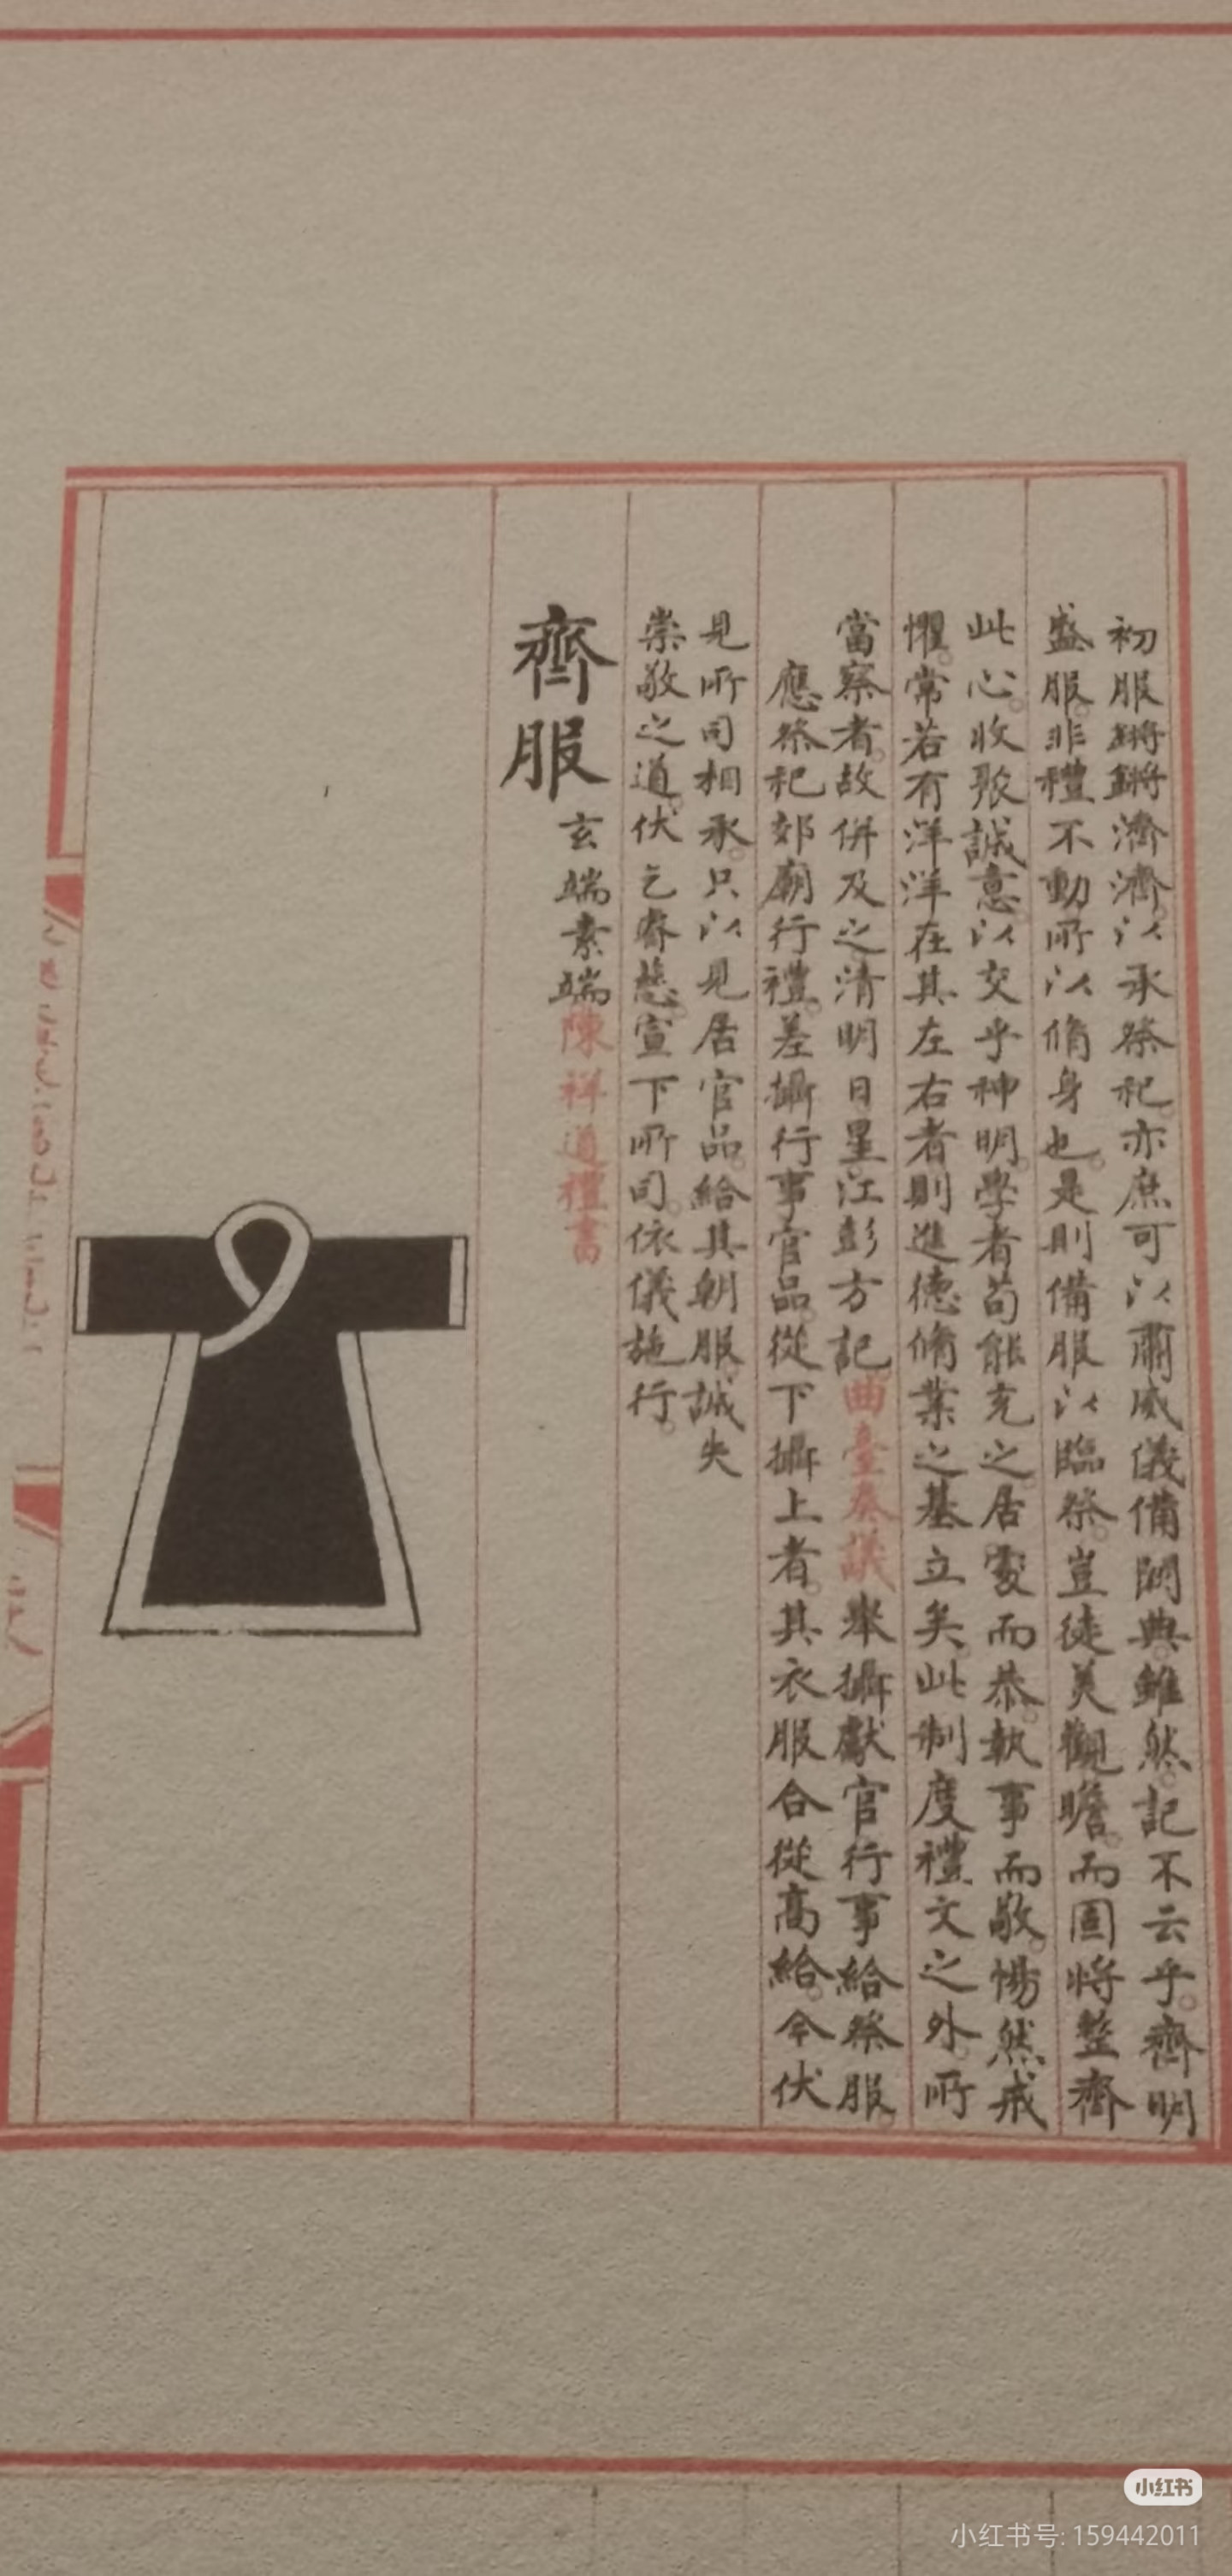 初服鏘鏘濟濟以承祭祀亦庶可以肅威儀備闕典雖然記不云乎齊明
盛服非禮不動所以脩身也是則備服以臨祭豈徒美觀瞻而固將整齊
此心收聚誠意以交乎神明學者苟能充之居處而恭執事而敬惕然戒
懼常若有洋洋在其左右者則進德脩業之基立矣此制度禮文之外所
當察者故併及之清明日星江彭方記曲臺奏議舉攝獻官行事給祭服
應祭祀郊廟行禮差攝行事官品從下攝上者其衣服合從高給今伏
見所司相承只以見居官品給其朝服誠失
崇敬之道伏乞睿慈宣下所司依儀施行
齊服玄端素端陳祥道禮書
小红书
小红书号: 159442011